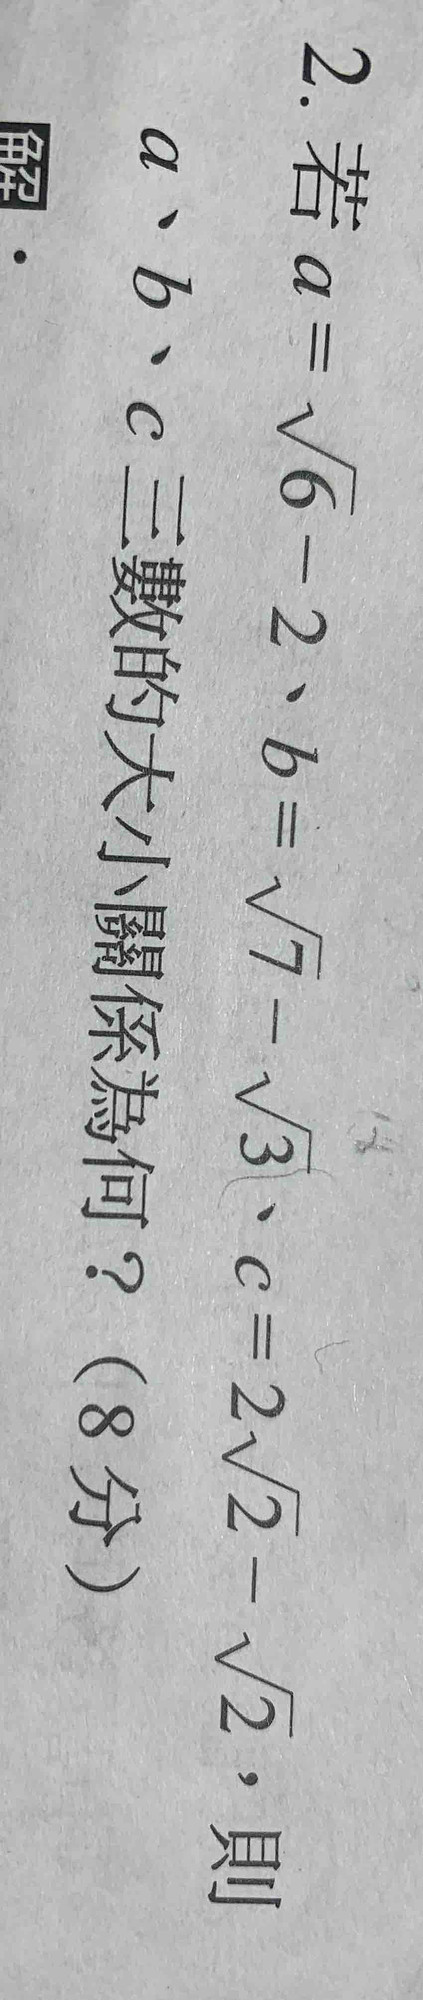 2. 若 a = √6 − 2、b = √7 − √3、c = 2√2 − √2，則
a、b、c 三數的大小關係為何？（8 分）
解